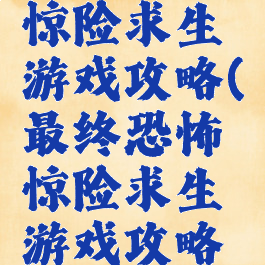 惊险求生
游戏攻略(
最终恐怖
惊险求生
游戏攻略